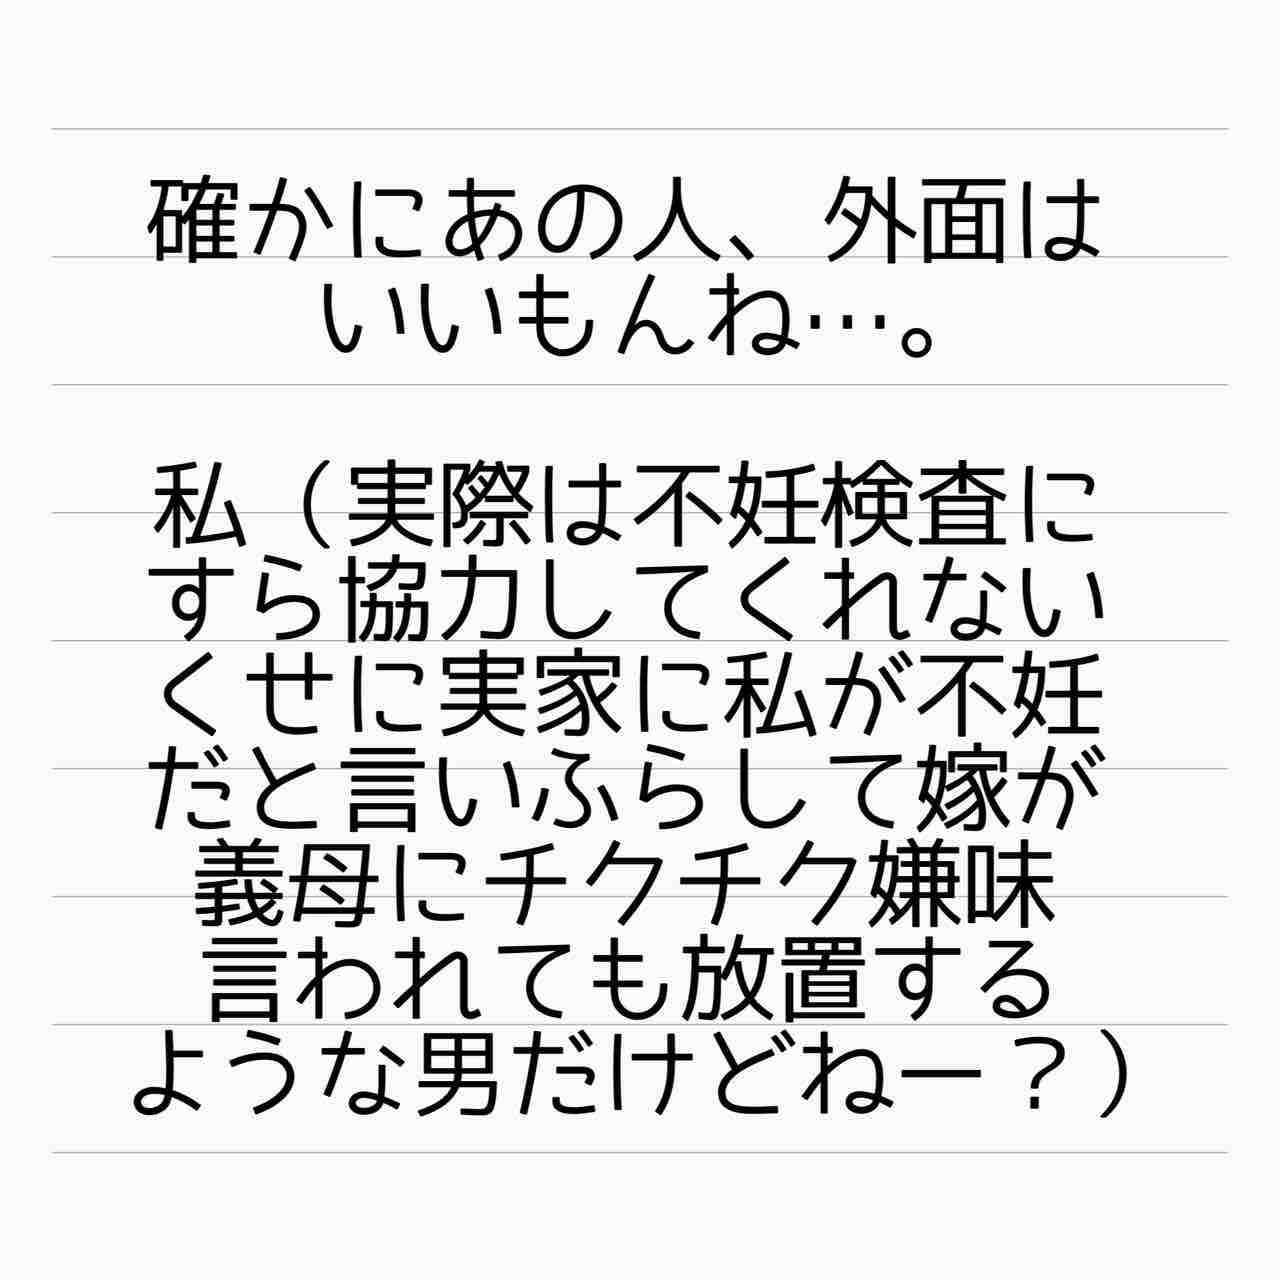 確かにあの人、外面は
いいもんね…。
私（実際は不妊検査に
すら協力してくれない
くせに実家に私が不妊
だと言いふらして嫁が
義母にチクチク嫌味
言われても放置する
ような男だけどねー？）